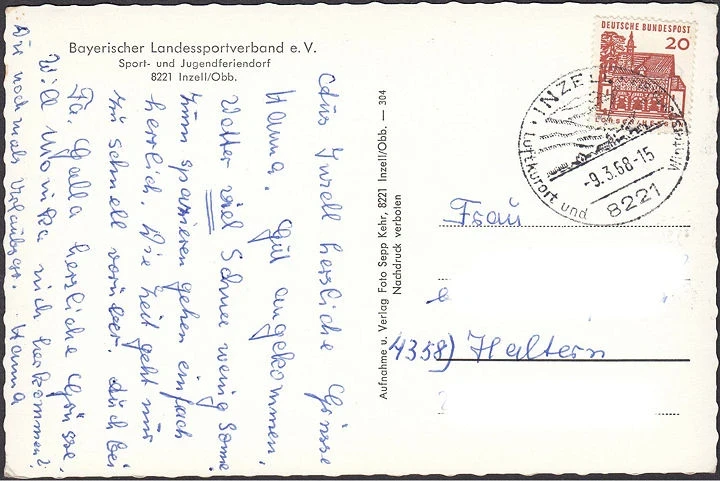 Bayerischer Landessportverband e. V.
Sport- und Jugendferiendorf
8221 Inzell/Obb.
Aus Inzell herzliche Grüsse
Hanna. Gut angekommen,
Wetter viel Schnee wenig Sonne
zum spazieren gehen einfach
herrlich. Die Zeit geht nur
zu schnell vorüber. Auch bei
Fa. Galla herzliche Grüsse.
Will Monika nich herkommen?
Die noch mals Hanna
Aufnahme u. Verlag Foto Sepp Kehr, 8221 Inzell/Obb. — 304
Nachdruck verboten
DEUTSCHE BUNDESPOST
20
INZELL
Luftkurort und Wintersp
-9.3.68-15
8221
Frau
4358) Haltern